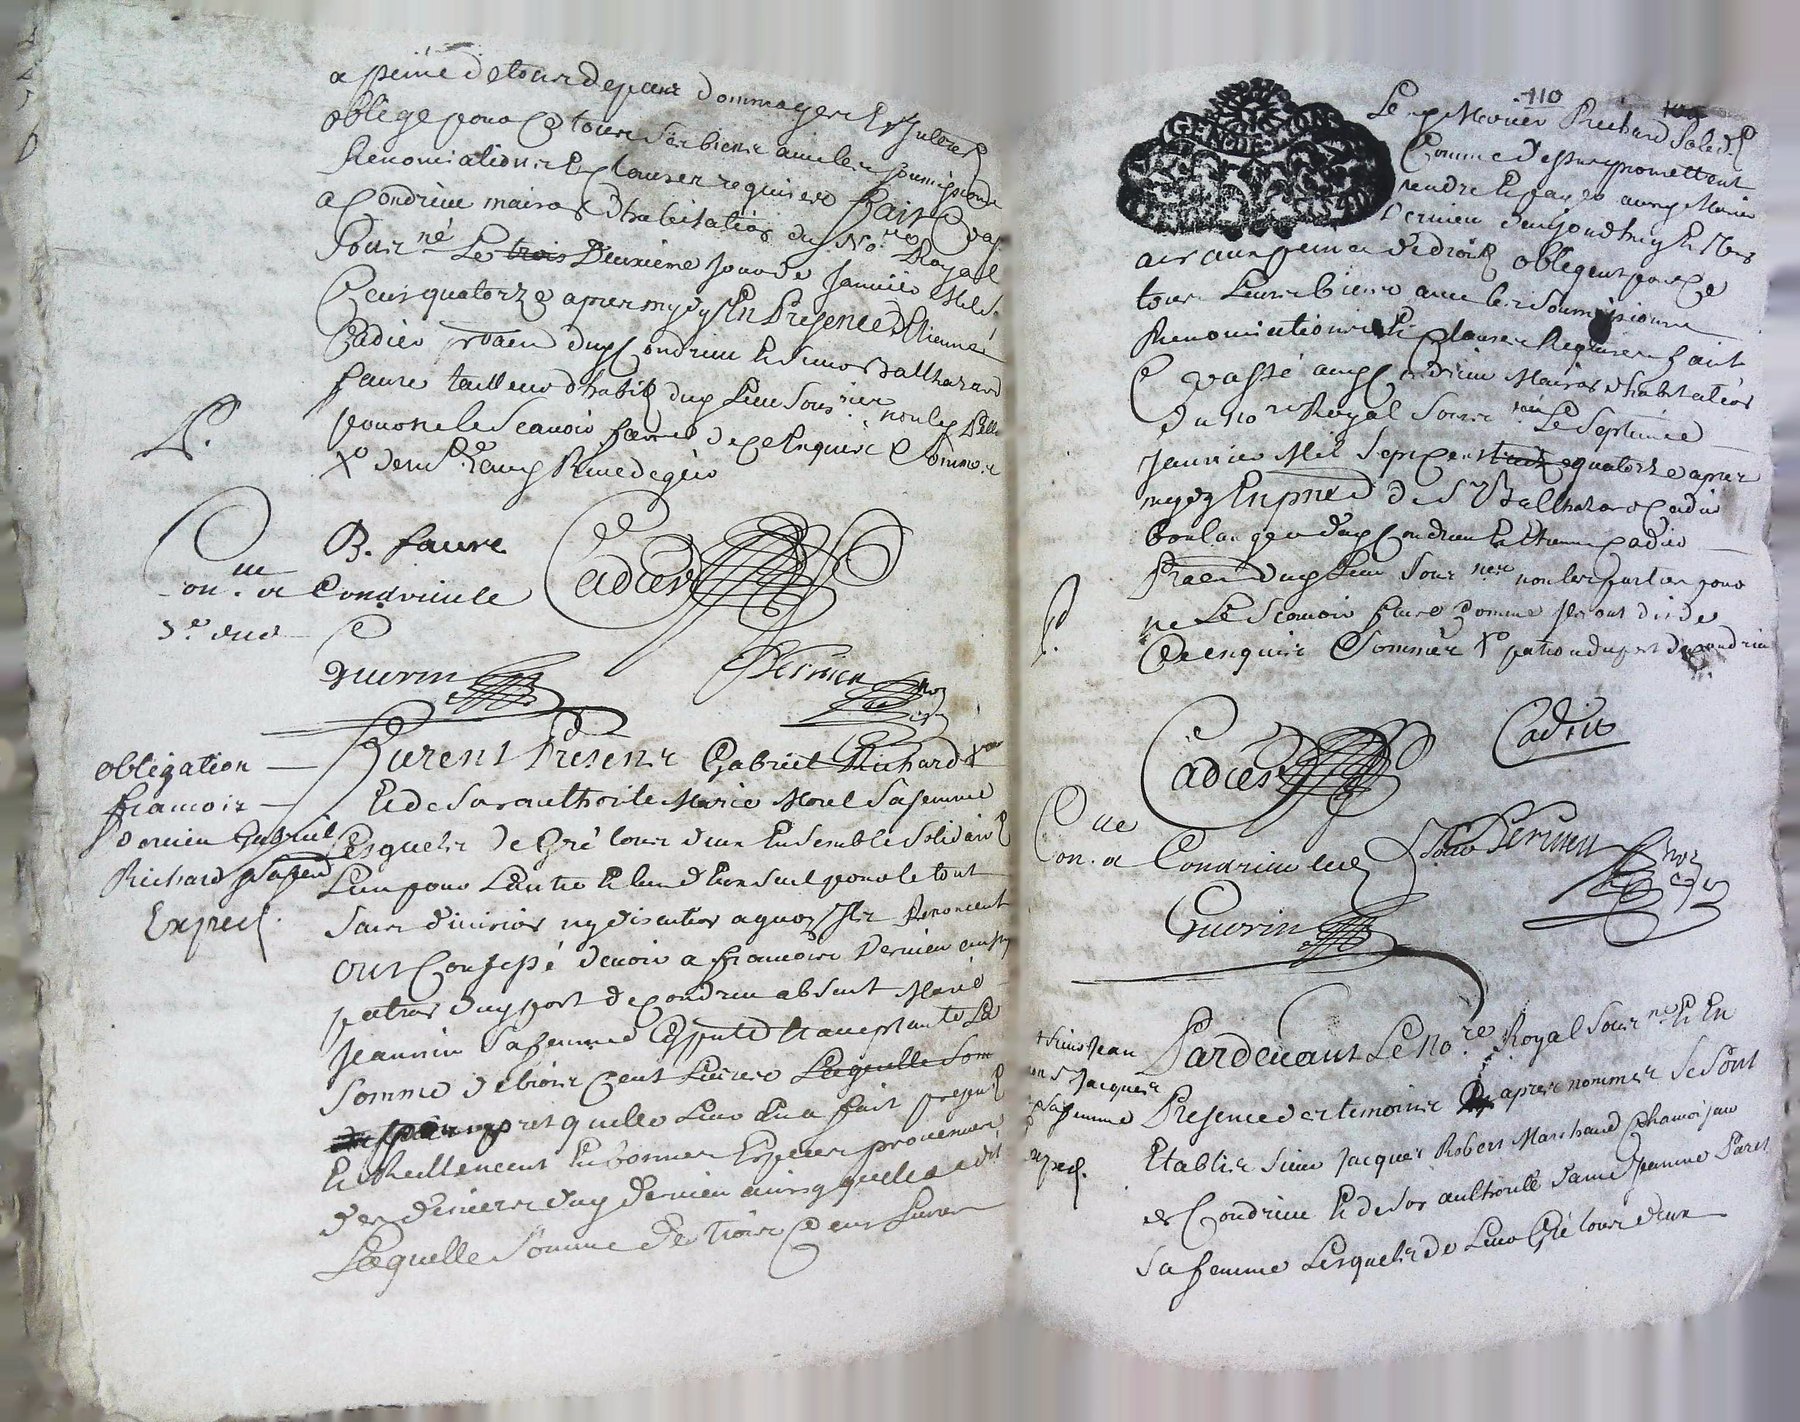 a peine de tous depens dommages et Interest
oblige pour ce tous ses biens avec les soumissions
Renonciations et clauses requises fait
a Condrieu maison d'habitation du No.re Royal
Sous.né Le trois Deuxieme jour de Janvier Mil S.
Cens quatorze apres mydy En Presence d'Etienne
Cadier du Condrieu et Sieur Balthazard
faure tailleur d'habits dud Lieu Sous
pour ne le Scavoir faire de ce Enquis et Sommé
B. faure
Cadier
Con.lle a Condrieu le
Guerin
Dernieu
obligation
francois
Dernieu Gabriel
Richard et sa fem
Exped.
Furent Presens Gabriel Richard
et de Son authorite Marie Morel Sa femme
Lesquels de Gré tous deux Ensemble Solidair
Lun pour Lautre et lun d'eux Seul pour le tout
Sans division ny discution a quoy Ils Renoncent
ont Confessé devoir a francois Dernieu
patron du port de Condrieu absent Marie
Jeannin Sa femme presente et acceptante La
Somme de trois Cent Livres Laquelle Som
pret quelle Leur en a fait
et Reellement En bonnes Especes provenues
des deniers dud Dernieu ainsy quelle a dit
Laquelle Somme de trois Cens Livres
110
GEN DE LYON
Le Mariés Richard Solid.
Comme dessus promettent
rendre et payer auxd Mariés
Dernieu daujourdhuy En
ans aux peines de droit obligeant pour ce
tous Leurs biens avec les Soumissions
Renonciations et Clauses Requises fait
et passé aud Condrieu Maison d'habitation
du No.re Royal Sous.né Le Septieme
Janvier Mil Sept Cens quatorze apres
mydy En pnce de Sr Balthazard Cadier
boulanger dud Condrieu et Etienne Cadier
dud Lieu Sous.nes non les parties pour
ne Le Scavoir faire Comme Ils ont dit de
Ce enquis et Sommés X patron du port de Condrieu
Cadier
Cadier
Con. a Condrieu le
Dernieu
Guerin
Sieurs Jean
Jacques
sa femme
Exped.
Pardevant Le No.re Royal Sous.né et En
Presence des temoins apres nommés Se Sont
Etablis Sieur Jacques Robert Marchand Chamoiseur
de Condrieu et de Son authorité dame Jeanne Paret
Sa femme Lesquels de Leur Gré tous deux